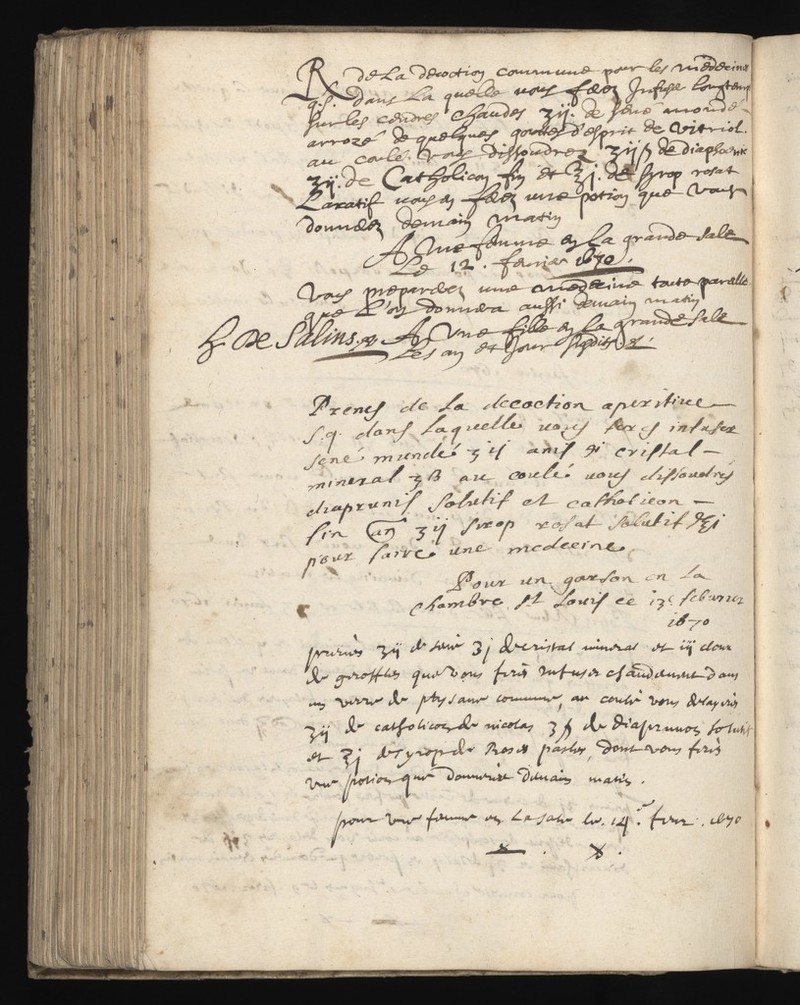 R de La decoction commune pour les medecines
q.s. dans La quelle vous ferez Infuser longtemps
sur les cendres chaudes ʒij. de sené mondé
arrozé de quelques gouttes d'esprit de vitriol.
au coulé. vous dissoudrez ʒijß de diaphœnic
ʒij. de Catholicon fin et ℥j. de syrop rosat
Laxatif vous en ferez une potion que vous
donnerez demain matin
A Une femme en La grande sale
Le 12. fevrier 1670.
Vous preparerez une medecine toute pareille
que L'on donnera aussi demain matin
H. De Salins. A Une fille en La grande sale
Les an et jour susdits
Prenes de la decoction aperitive
s.q. dans laquelle vous feres infuser
sené mundé ʒij anis ℈i cristal
mineral ʒß au coulé vous dissoudrés
diaprunis solutif et catholicon
fin an ʒij sirop rosat solutif ℥i
pour faire une medecine
Pour un garson en la
chambre st Louis ce 13e feburier
1670
prenés ʒij de sené ʒj de cristal mineral et iij clous
de geroffles que vous ferés infuser chaudement dans
un verre de ptysane commune, au coulé vous delayerés
ʒij de catholicon de nicolas ʒß de diaprunos solutif
et ℥j de syrop de Roses pasles, dont vous ferés
une potion que donnerés demain matin.
pour une femme en La sale le. 14e. fevr. 1670